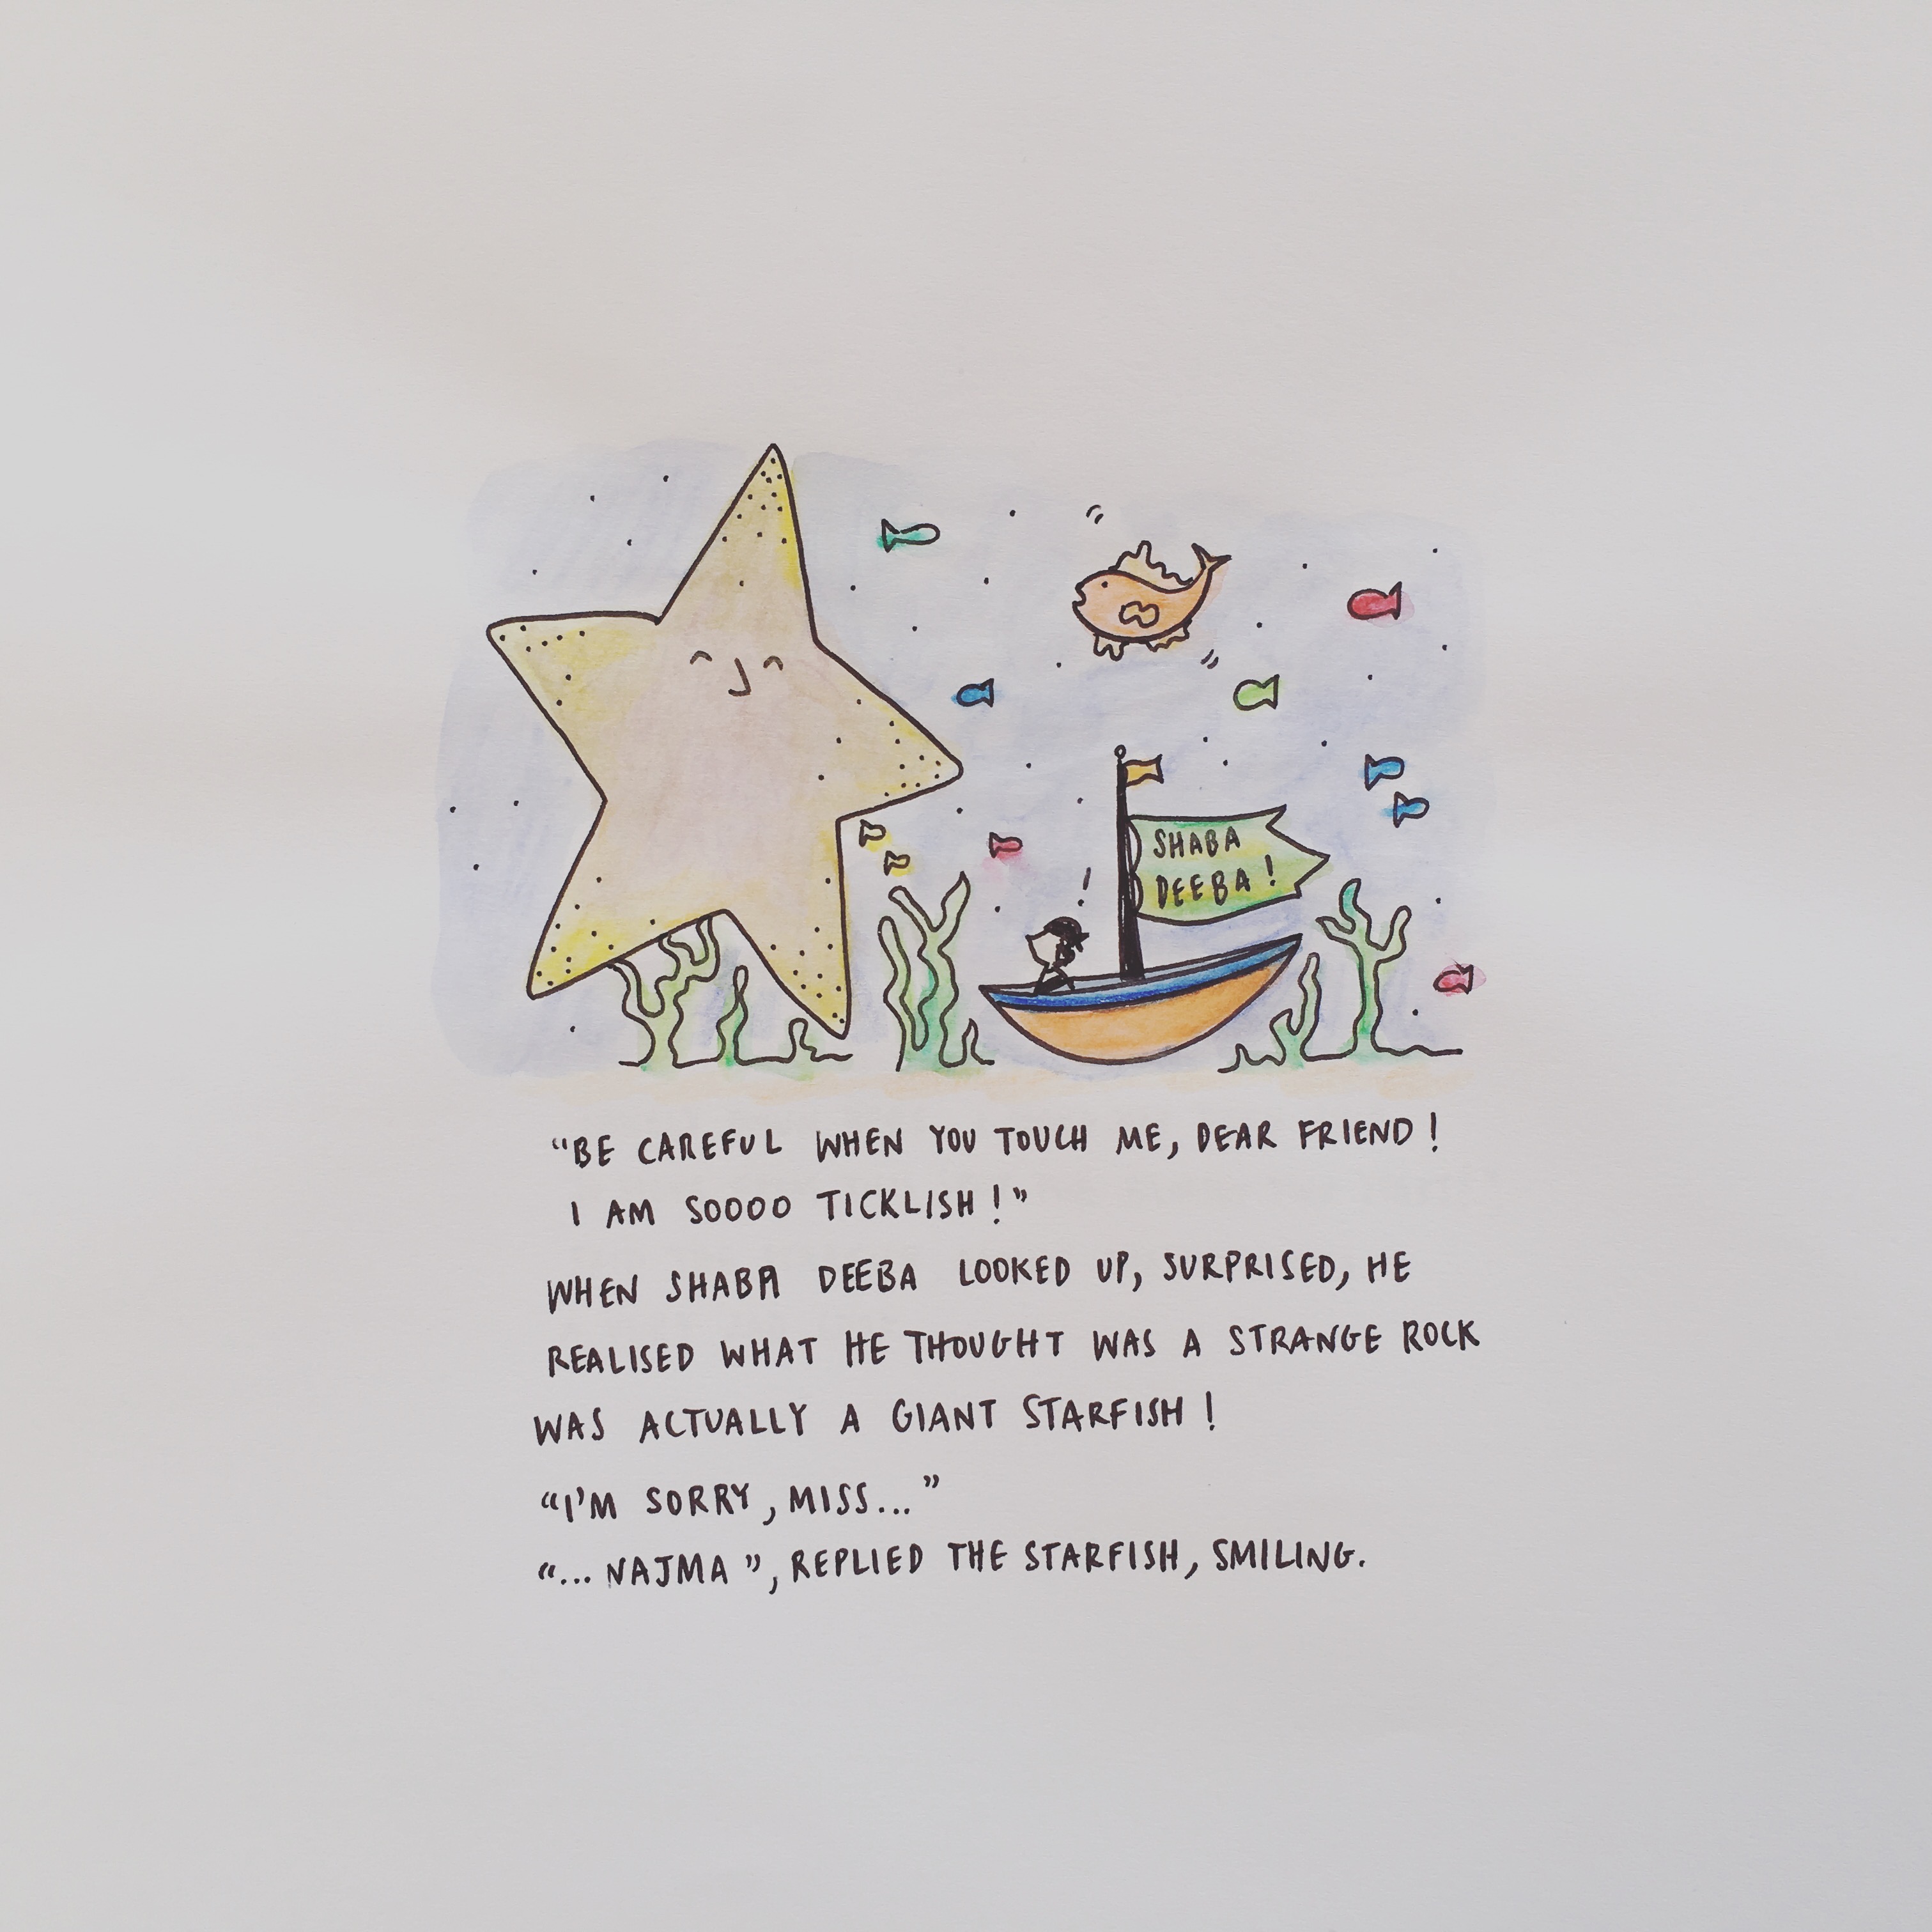 SHABA
DEEBA!
"BE CAREFUL WHEN YOU TOUCH ME, DEAR FRIEND!
I AM SOOOO TICKLISH!"
WHEN SHABA DEEBA LOOKED UP, SURPRISED, HE
REALISED WHAT HE THOUGHT WAS A STRANGE ROCK
WAS ACTUALLY A GIANT STARFISH!
"I'M SORRY, MISS..."
"... NAJMA", REPLIED THE STARFISH, SMILING.